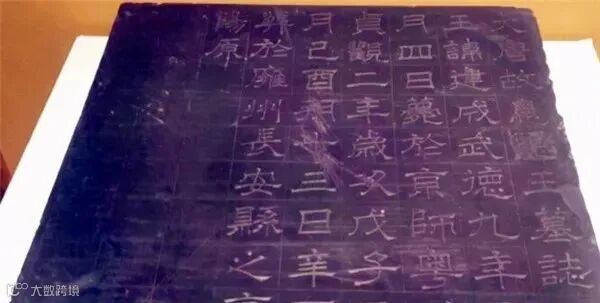 大唐故息隱王墓誌
王諱建成武德九年
月四日薨於京師粵
貞觀二年歲次戊子
月己酉朔十三日辛
葬於雍州長安縣之
陽原
大数跨境